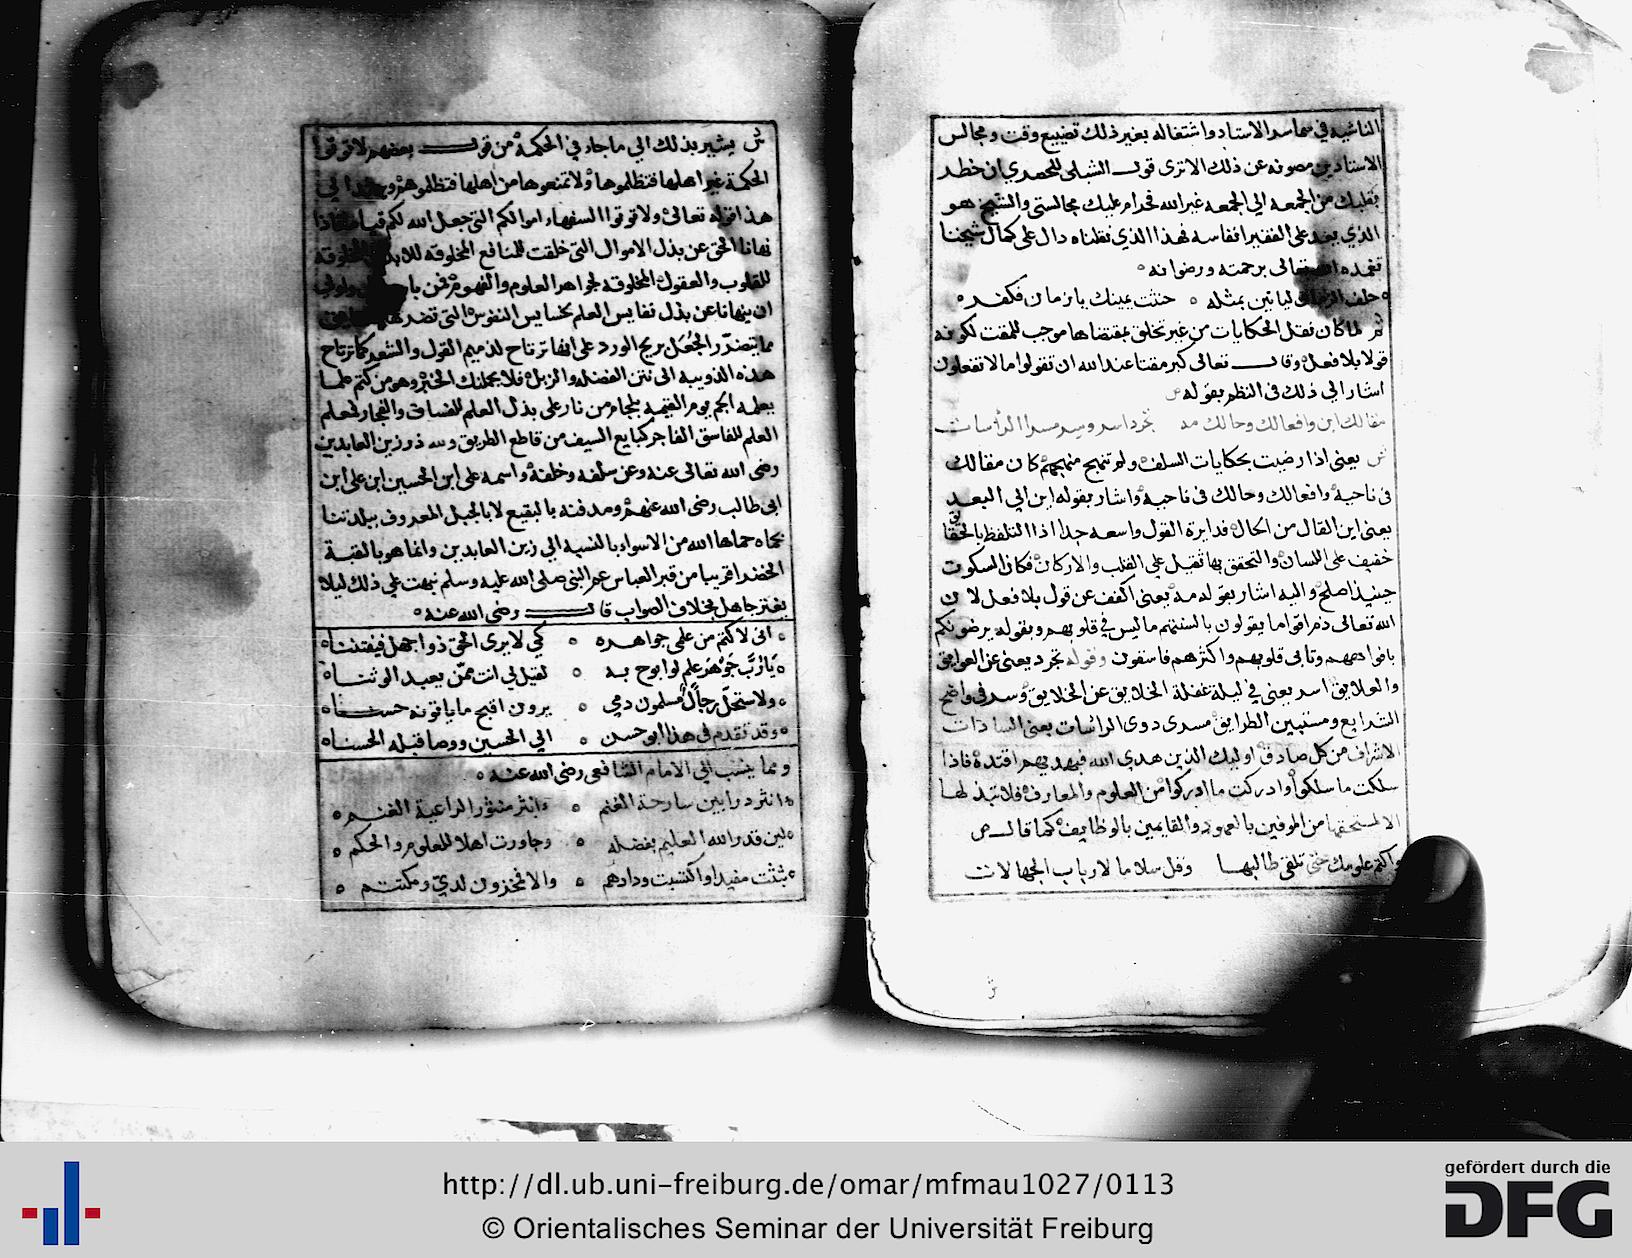 الناشيه في سماسر الاستاد واشتغاله بغير ذلك تضييع وقت ومجالس
الاستادين مصونه عن ذلك الاترى قول الشبلى للحصري ان خطر
بقلبك من الجمعه الي الجمعه غير الله فحرام عليك مجالستي والشيخ هو
الذي يعد على الفقير انفاسه فهذا الذي نقلناه دال على كمال شيخنا
تغمده الله تعالى برحمته ورضوانه
حلف الزمان لياتين بمثله حنثت يمينك يا زمان فكفر
ثم لما كان نقل الحكايات من غير تخلق بمقتضاها موجب للمقت لكونه
قولا بلا فعل وقال تعالى كبر مقتا عند الله ان تقولوا ما لا تفعلون
اشار الي ذلك في النظم بقوله
مقالك اين وافعالك وحالك
ش يعنى اذا رضيت بحكايات السلف ولم تنهج منهجهم كان مقالك
في ناحية وافعالك وحالك في ناحية واشار بقوله اين الي البعد
يعنى اين القال من الحال فدايرة القول واسعه جدا اذا التلفظ بالحقايق
خفيف على اللسان والتحقق بها ثقيل علي القلب والاركان فكان السكوت
حينيذ اصلح واليه اشار بقوله مه يعنى اكفف عن قول بلا فعل لان
الله تعالى ذم اقواما يقولون بالسنتهم ما ليس في قلوبهم وبقوله يرضونكم
بافواههم وتابى قلوبهم واكثرهم فاسقون وقوله تجرد يعنى عن العوايق
والعلايق اسر يعنى في ليلة غفلة الخلايق عن الخلايق وسر في واضح
الشرايع ومستبين الطرايق مسرى ذوى الراسات يعنى السادات
الاشراف من كل صادق اوليك الذين هدي الله فبهديهم اقتده فاذا
سلكت ما سلكوا وادركت ما ادركوا من العلوم والمعارف فلا تبذلها
الا لمستحقها من الموفين بالعهود والقايمين بالوظايف كما قال ص
واكتم علومك حتى تلقى طالبها وقل سلاما لارباب الجهالات
ش يشير بذلك الي ما جاء في الحكمة من قول بعضهم لا توتوا
الحكمة غير اهلها فتظلموها ولا تمنعوها من اهلها فتظلموهم
هذا قوله تعالى ولا توتوا السفهاء اموالكم التى جعل الله لكم قياما فاذا
نهانا الحق عن بذل الاموال التى خلقت للمنافع المخلوقه
للقلوب والعقول المخلوقه لجواهر العلوم والفهوم
ان ينهانا عن بذل نفايس العلم لخسايس النفوس التى تضر
مما يتضرر الجُعَل بريح الورد على انها ترتاح لذميم القول والشعر كما ترتاح
هذه الدويبه الى نتن الفضله والزبل فلا يحملنك الخبر وهو من كتم علما
يعلمه الجم يوم القيمه بلجام من نار على بذل العلم للفساق والفجار فمعلم
العلم للفاسق الفاجر كبايع السيف من قاطع الطريق ولله در زين العابدين
رضى الله تعالى عنه وعن سلفه وخلفه واسمه على ابن الحسين ابن على ابن
ابى طالب رضى الله عنهم ومدفنه بالبقيع لا بالجبل المعروف ببلدتنا
حماه حماها الله من الاسواء بالنسبه الي زين العابدين وانما هو بالقبة
الخضرا قريبا من قبر العباس عم النبى صلى الله عليه وسلم نبهت علي ذلك ليلا
يغتر جاهل بخلاف الصواب قال رضى الله عنه
انى لاكتم من علمى جواهره كي لا يرى الحق ذو اجهل فيفتننا
يَا رُبَّ جَوْهَر علم لو ابوح به لقيل لي انت ممّن يعبد الوثنا
ولاستحلّ رجالٌ مسلمون دمي يرون اقبح ما ياتونه حسنا
وقد تقدم في هذا ابو حسن الي الحسين ووصا قبله الحسنا
ومما ينسب الي الامام الشافعى رضى الله عنه
انثر درا بين سارحة الغنم وانثر منثورا لراعية الغنم
لين قدر الله العليم بفضله وجاورت اهلا للعلوم والحكم
بثثت مفيدا واكتسبت ودادهم والا فمخزون لديّ ومكتتم
http://dl.ub.uni-freiburg.de/omar/mfmau1027/0113
© Orientalisches Seminar der Universität Freiburg
gefördert durch die
DFG